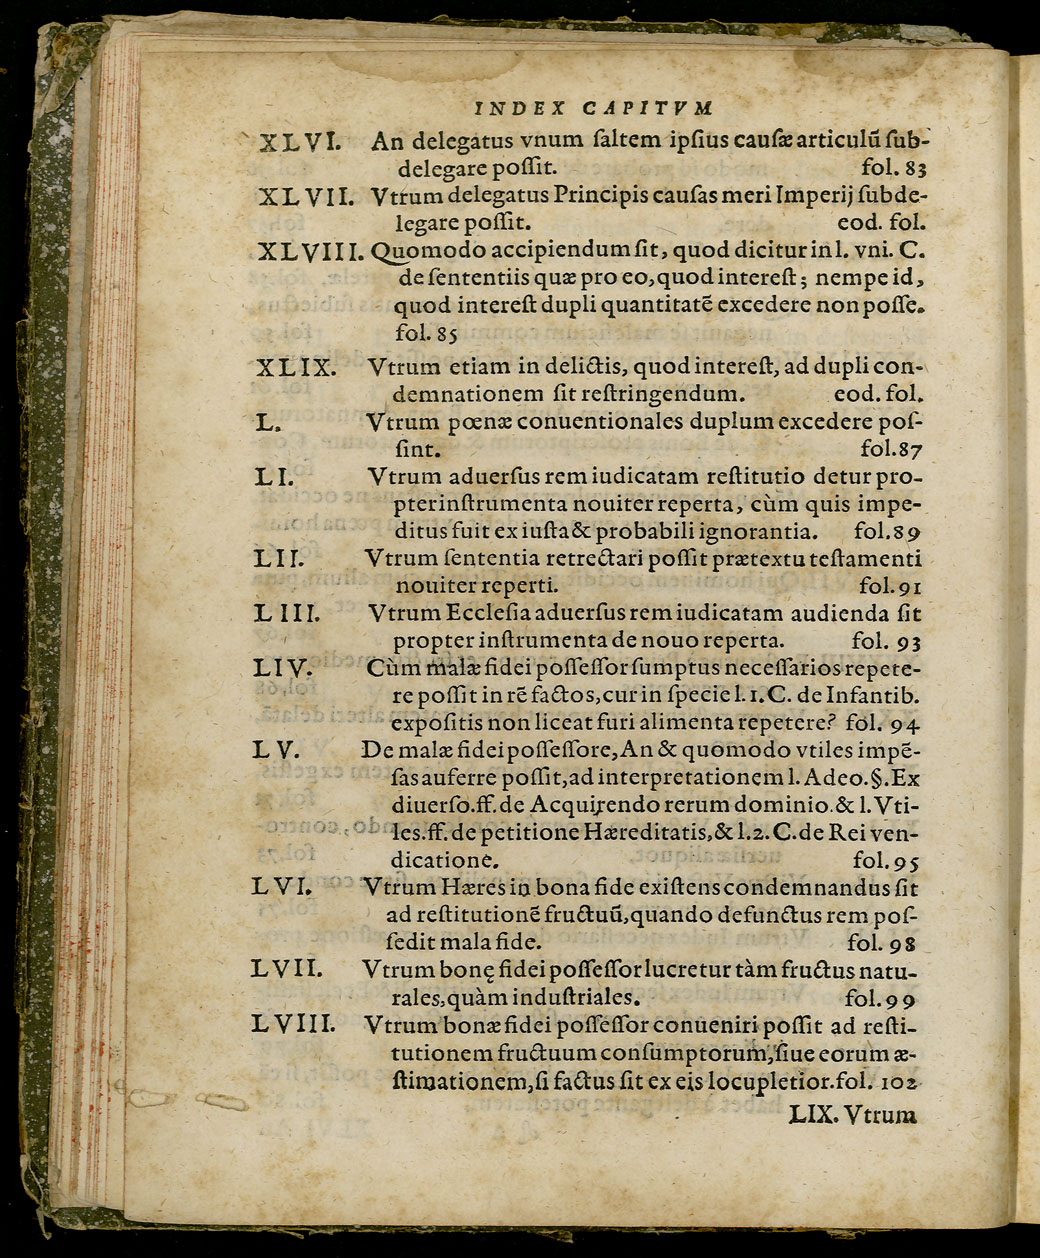 INDEX CAPITVM
XLVI. An delegatus vnum ſaltem ipſius cauſæ articulũ ſub-
delegare poſſit. fol. 83
XLVII. Vtrum delegatus Principis cauſas meri Imperij ſubde-
legare poſſit. eod. fol.
XLVIII. Quomodo accipiendum ſit, quod dicitur in l. vni. C.
de ſententiis quæ pro eo, quod intereſt; nempe id,
quod intereſt dupli quantitatẽ excedere non poſſe.
fol. 85
XLIX. Vtrum etiam in delictis, quod intereſt, ad dupli con-
demnationem ſit reſtringendum. eod. fol.
L. Vtrum pœnæ conuentionales duplum excedere poſ-
ſint. fol. 87
LI. Vtrum aduerſus rem iudicatam reſtitutio detur pro-
pter inſtrumenta nouiter reperta, cùm quis impe-
ditus fuit ex iuſta & probabili ignorantia. fol. 89
LII. Vtrum ſententia retrectari poſſit prætextu teſtamenti
nouiter reperti. fol. 91
LIII. Vtrum Eccleſia aduerſus rem iudicatam audienda ſit
propter inſtrumenta de nouo reperta. fol. 93
LIV. Cùm malæ fidei poſſeſſor ſumptus neceſſarios repete-
re poſſit in rẽ factos, cur in ſpecie l. 1. C. de Infantib.
expoſitis non liceat furi alimenta repetere? fol. 94
LV. De malæ fidei poſſeſſore, An & quomodo vtiles impẽ-
ſas auferre poſſit, ad interpretationem l. Adeo. §. Ex
diuerſo. ff. de Acquirendo rerum dominio. & l. Vti-
les. ff. de petitione Hæreditatis, & l. 2. C. de Rei ven-
dicatione. fol. 95
LVI. Vtrum Hæres in bona fide exiſtens condemnandus ſit
ad reſtitutionẽ fructuũ, quando defunctus rem poſ-
ſedit mala fide. fol. 98
LVII. Vtrum bonę fidei poſſeſſor lucretur tàm fructus natu-
rales, quàm induſtriales. fol. 99
LVIII. Vtrum bonæ fidei poſſeſſor conueniri poſſit ad reſti-
tutionem fructuum conſumptorum, ſiue eorum æ-
ſtimationem, ſi factus ſit ex eis locupletior. fol. 102
LIX. Vtrum